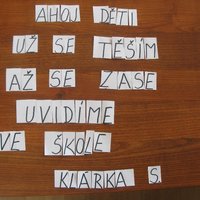 AHOJ DĚTI
UŽ SE TĚŠÍM
AŽ SE ZASE
UVIDÍME
VE ŠKOLE
KLÁRKA S.